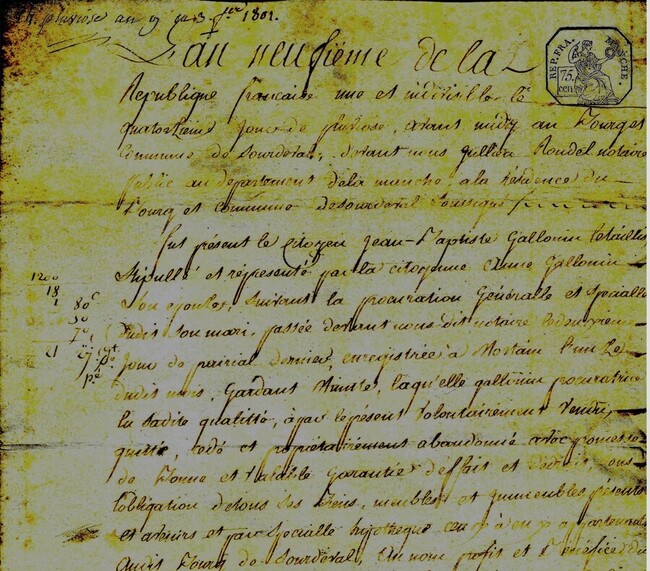 pluviose an 9 3 fer 1801.
L'an neufième de la
REP. FRA. MANCHE. 75 cen
Republique francaise une et indivisible le
quatorzieme jour de pluviose, avant midy au Bourg et
Commune de Sourdeval, devant nous Jullien Rondel notaire
public au département de la manche, a la residence du
Bourg et commune de Sourdeval soussigné
fut présent le citoyen Jean-Baptiste Gallouin
Stipullé et représenté par la citoyenne Anne Gallouin
1200
18
Son epouse, suivant la procuration Généralle et specialle
1 80c
50
dudit son mari, passée devant nous dit notaire
70
jour de prairial dernier, enregistrée à Mortain le
dudit mois, Gardant Minute, laquelle gallouin procuratrice
en sadite qualitté, a par le present volontairement vendu,
quitté, cedé et propriétairement abandonné avec promesse
de bonne et valable garantie
l'obligation de tous ses biens, meubles et immeubles présents
et avenirs et par specialle hypotheque
audit Bourg de Sourdeval, au nom profit et Bénéfice du